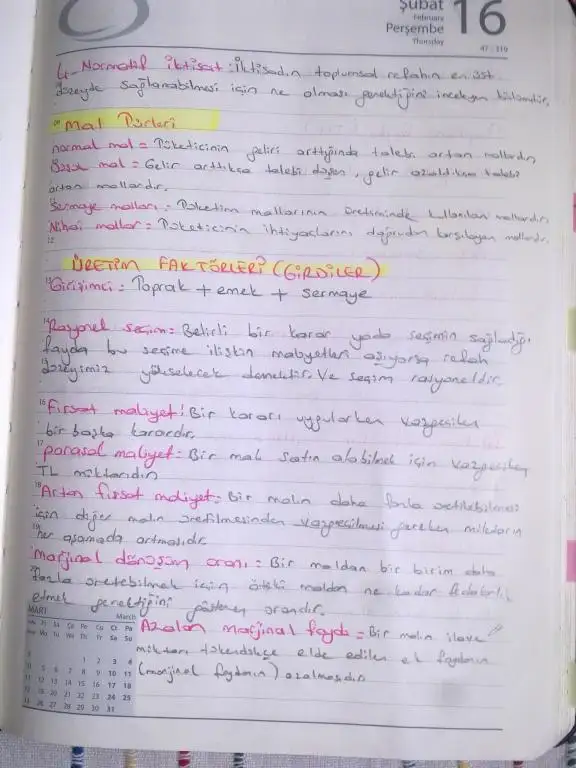 Şubat
February
Perşembe
Thursday
16
47 - 319
4- Normatif iktisat: İktisadın toplumsal refahın en üst
düzeyde sağlanabilmesi için ne olması gerektiğini inceleyen bölümdür.
Mal Türleri
normal mal = Tüketicinin geliri arttığında talebi artan mallardır
mal = Gelir arttıkça talebi düşen, gelir azaldıkça talebi
artan mallardır.
Sermaye malları = Tüketim mallarının üretiminde kullanılan mallardır
Nihai mallar = Tüketicinin ihtiyaçlarını doğrudan karşılayan mallardır.
ÜRETİM FAKTÖRLERİ (GİRDİLER)
Girişimci = Toprak + emek + sermaye
Rasyonel seçim = Belirli bir karar yada seçimin sağladığı
fayda bu seçime ilişkin maliyetleri aşıyorsa refah
düzeyimiz yükselecek demektir. Ve seçim rasyoneldir.
fırsat maliyet: Bir kararı uygularken vazgeçilen
bir başka karardır.
parasal maliyet = Bir mal satın alabilmek için vazgeçilen
TL miktarıdır
Artan fırsat maliyet = Bir malın daha fazla üretilebilmesi
için diğer malın üretilmesinden vazgeçilmesi gereken miktarın
her aşamada artmasıdır.
Marjinal dönüşüm oranı = Bir maldan bir birim daha
fazla üretebilmek için öteki maldan ne kadar fedakarlık
etmek gerektiğini gösteren orandır.
MART March
Azalan marjinal fayda = Bir malın ilave
miktarı tükendikçe elde edilen ek faydanın
(marjinal faydanın) azalmasıdır
1 2 3 4
5 6 7 8 9 10 11
12 13 14 15 16 17 18
19 20 21 22 23 24 25
26 27 28 29 30 31